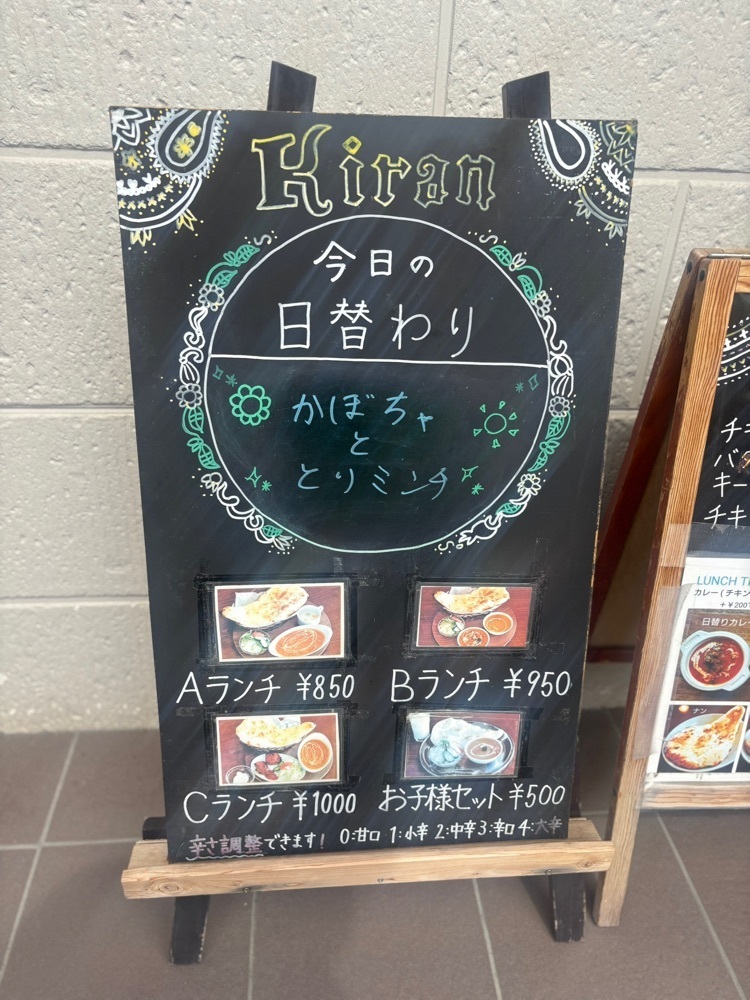 Kiran
今日の
日替わり
かぼちャ
と
とりミンチ
Aランチ ¥850
Bランチ ¥950
Cランチ ¥1000
お子様セット ¥500
辛さ調整できます! 0:甘口 1:小辛 2:中辛 3:辛口 4:大辛
チキ
バ
キー
チキ
LUNCH T
カレー(チキン
+¥200
日替りカレー
ナン